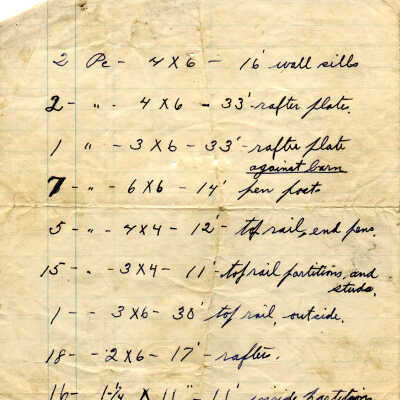 2 Pc - 4 X 6 - 16' wall sills
2 - " - 4 X 6 - 33' - rafter plate.
1 " - 3 X 6 - 33' - rafter plate
against barn
7 - " - 6 X 6 - 14' pen posts
5 - " - 4 X 4 - 12' - top rail, end pens.
15 - " - 3 X 4 - 11' - top rail partitions, and
studs.
1 - - 3 X 6 - 30' top rail, outside.
18 - - 2 X 6 - 17' - rafters.
16 - 1-1/4 X 11" - 11' inside partitions